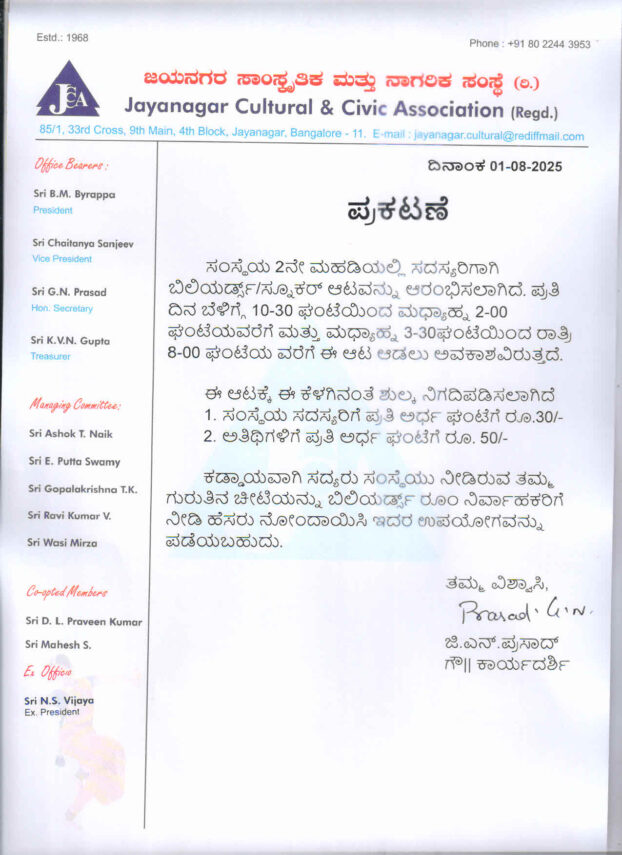 Estd.: 1968
Phone : +91 80 2244 3953
JCCA
ಜಯನಗರ ಸಾಂಸ್ಕೃತಿಕ ಮತ್ತು ನಾಗರಿಕ ಸಂಸ್ಥೆ (ರಿ.)
Jayanagar Cultural & Civic Association (Regd.)
85/1, 33rd Cross, 9th Main, 4th Block, Jayanagar, Bangalore - 11. E-mail : jayanagar.cultural@rediffmail.com
Office Bearers :
Sri B.M. Byrappa
President
Sri Chaitanya Sanjeev
Vice President
Sri G.N. Prasad
Hon. Secretary
Sri K.V.N. Gupta
Treasurer
Managing Committee:
Sri Ashok T. Naik
Sri E. Putta Swamy
Sri Gopalakrishna T.K.
Sri Ravi Kumar V.
Sri Wasi Mirza
Co-opted Members
Sri D. L. Praveen Kumar
Sri Mahesh S.
Ex Officio
Sri N.S. Vijaya
Ex. President
ದಿನಾಂಕ 01-08-2025
ಪ್ರಕಟಣೆ
ಸಂಸ್ಥೆಯ 2ನೇ ಮಹಡಿಯಲ್ಲಿ ಸದಸ್ಯರಿಗಾಗಿ
ಬಿಲಿಯರ್ಡ್ಸ್/ಸ್ನೂಕರ್ ಆಟವನ್ನು ಆರಂಭಿಸಲಾಗಿದೆ. ಪ್ರತಿ
ದಿನ ಬೆಳಿಗ್ಗೆ 10-30 ಘಂಟೆಯಿಂದ ಮಧ್ಯಾಹ್ನ 2-00
ಘಂಟೆಯವರೆಗೆ ಮತ್ತು ಮಧ್ಯಾಹ್ನ 3-30ಘಂಟೆಯಿಂದ ರಾತ್ರಿ
8-00 ಘಂಟೆಯ ವರೆಗೆ ಈ ಆಟ ಆಡಲು ಅವಕಾಶವಿರುತ್ತದೆ.
ಈ ಆಟಕ್ಕೆ ಈ ಕೆಳಗಿನಂತೆ ಶುಲ್ಕ ನಿಗದಿಪಡಿಸಲಾಗಿದೆ
1. ಸಂಸ್ಥೆಯ ಸದಸ್ಯರಿಗೆ ಪ್ರತಿ ಅರ್ಧ ಘಂಟೆಗೆ ರೂ.30/-
2. ಅತಿಥಿಗಳಿಗೆ ಪ್ರತಿ ಅರ್ಧ ಘಂಟೆಗೆ ರೂ. 50/-
ಕಡ್ಡಾಯವಾಗಿ ಸದ್ಯರು ಸಂಸ್ಥೆಯು ನೀಡಿರುವ ತಮ್ಮ
ಗುರುತಿನ ಚೀಟಿಯನ್ನು ಬಿಲಿಯರ್ಡ್ಸ್ ರೂಂ ನಿರ್ವಾಹಕರಿಗೆ
ನೀಡಿ ಹೆಸರು ನೋಂದಾಯಿಸಿ ಇದರ ಉಪಯೋಗವನ್ನು
ಪಡೆಯಬಹುದು.
ತಮ್ಮ ವಿಶ್ವಾಸಿ,
Prasad. G.N.
ಜಿ.ಎನ್.ಪ್ರಸಾದ್
ಗೌ|| ಕಾರ್ಯದರ್ಶಿ